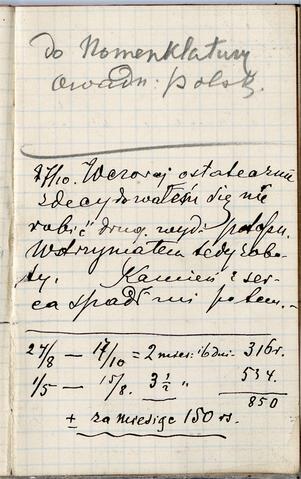 do Nomenklatury
owadn. polsk.
27/10. Wczoraj ostatecznie
zdecydowałem się nie
robić drug. wyd. potopu.
Wstrzymałem tedy robo-
ty. Kamień z ser-
ca spadł mi potem.
24/8 — 17/10 = 2 mies. 16 dni. 316 r.
1/5 — 15/8. 3 1/2 " 534.
850
± za miesiąc 150 rs.